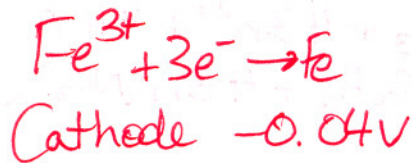 Fe³⁺+3e⁻→Fe
Cathode -0.04V